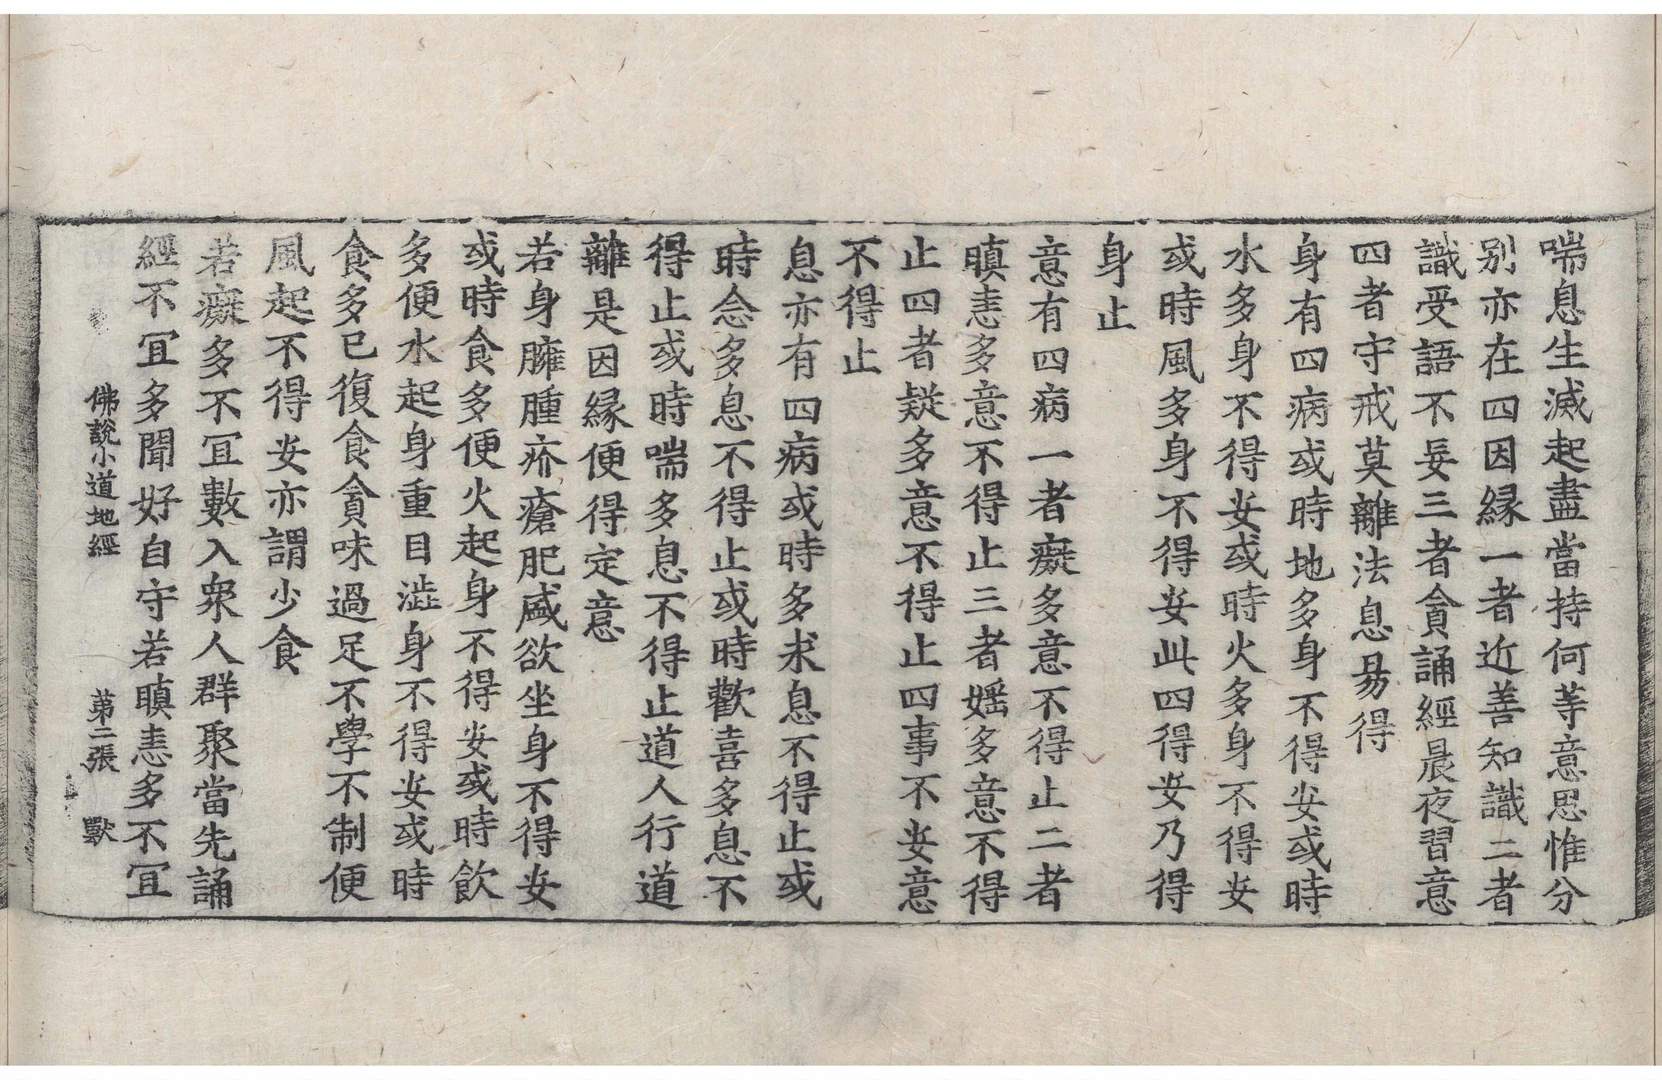 喘息生滅起盡當持何等意思惟分
別亦在四因緣一者近善知識二者
識受語不妄三者貪誦經晨夜習意
四者守戒莫離法息易得
身有四病或時地多身不得安或時
水多身不得安或時火多身不得安
或時風多身不得安此四得安乃得
身止
意有四病一者癡多意不得止二者
瞋恚多意不得止三者婬多意不得
止四者疑多意不得止四事不安意
不得止
息亦有四病或時多求息不得止或
時念多息不得止或時歡喜多息不
得止或時喘多息不得止道人行道
離是因緣便得定意
若身臃腫疥瘡肥盛欲坐身不得安
或時食多便火起身不得安或時飲
多便水起身重目澁身不得安或時
食多已復食貪味過足不學不制便
風起不得安亦謂少食
若癡多不冝數入衆人群聚當先誦
經不冝多聞好自守若瞋恚多不冝
佛說小道地經 第二張 獸